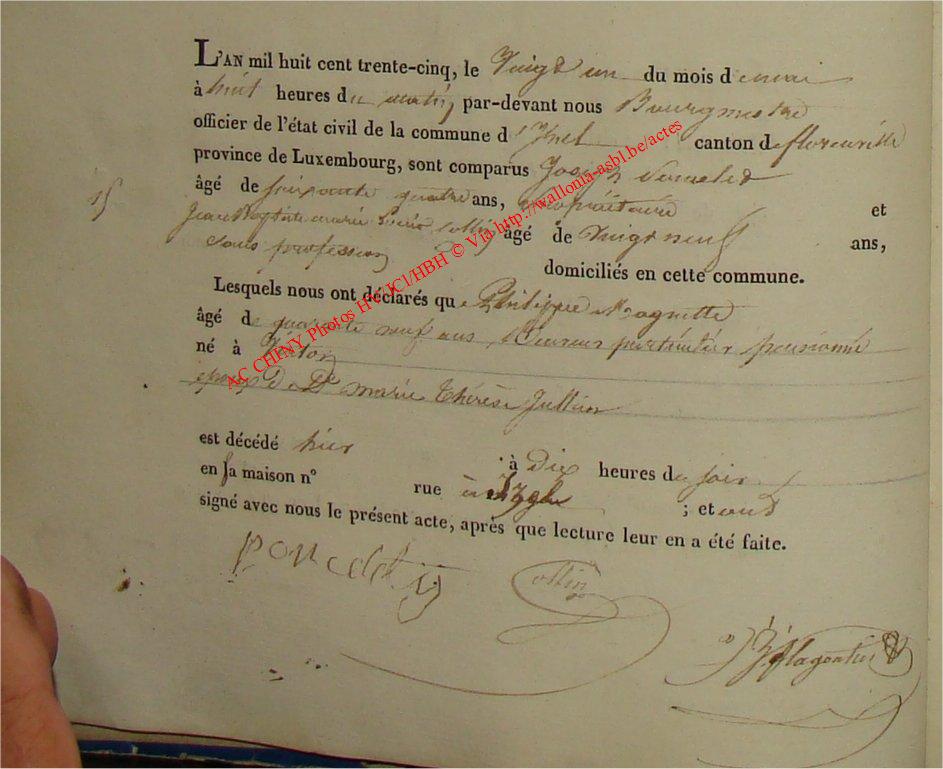 L'AN mil huit cent trente-cinq, le Vingt un du mois de mai
à huit heures du matin, par-devant nous Bourgmestre
officier de l'état civil de la commune d'Izel canton de florenville
province de Luxembourg, sont comparus Joseph
15
âgé de soixante quatre ans, propriétaire et
Jean Baptiste marie Louis Collin âgé de Vingt neuf ans,
sans profession
domiciliés en cette commune.
Lesquels nous ont déclarés que Philippe Magnette
âgé de quarante neuf ans, Receveur particulier pensionné
né à
époux de De marie Thérèse Jullien
est décédé hier à Dix heures du soir
en sa maison n° rue à Izel ; et ont
signé avec nous le présent acte, après que lecture leur en a été faite.
Collin
AC CHINY Photos HC/JCI/HBH © Via http://wallonia-asbl.be/actes